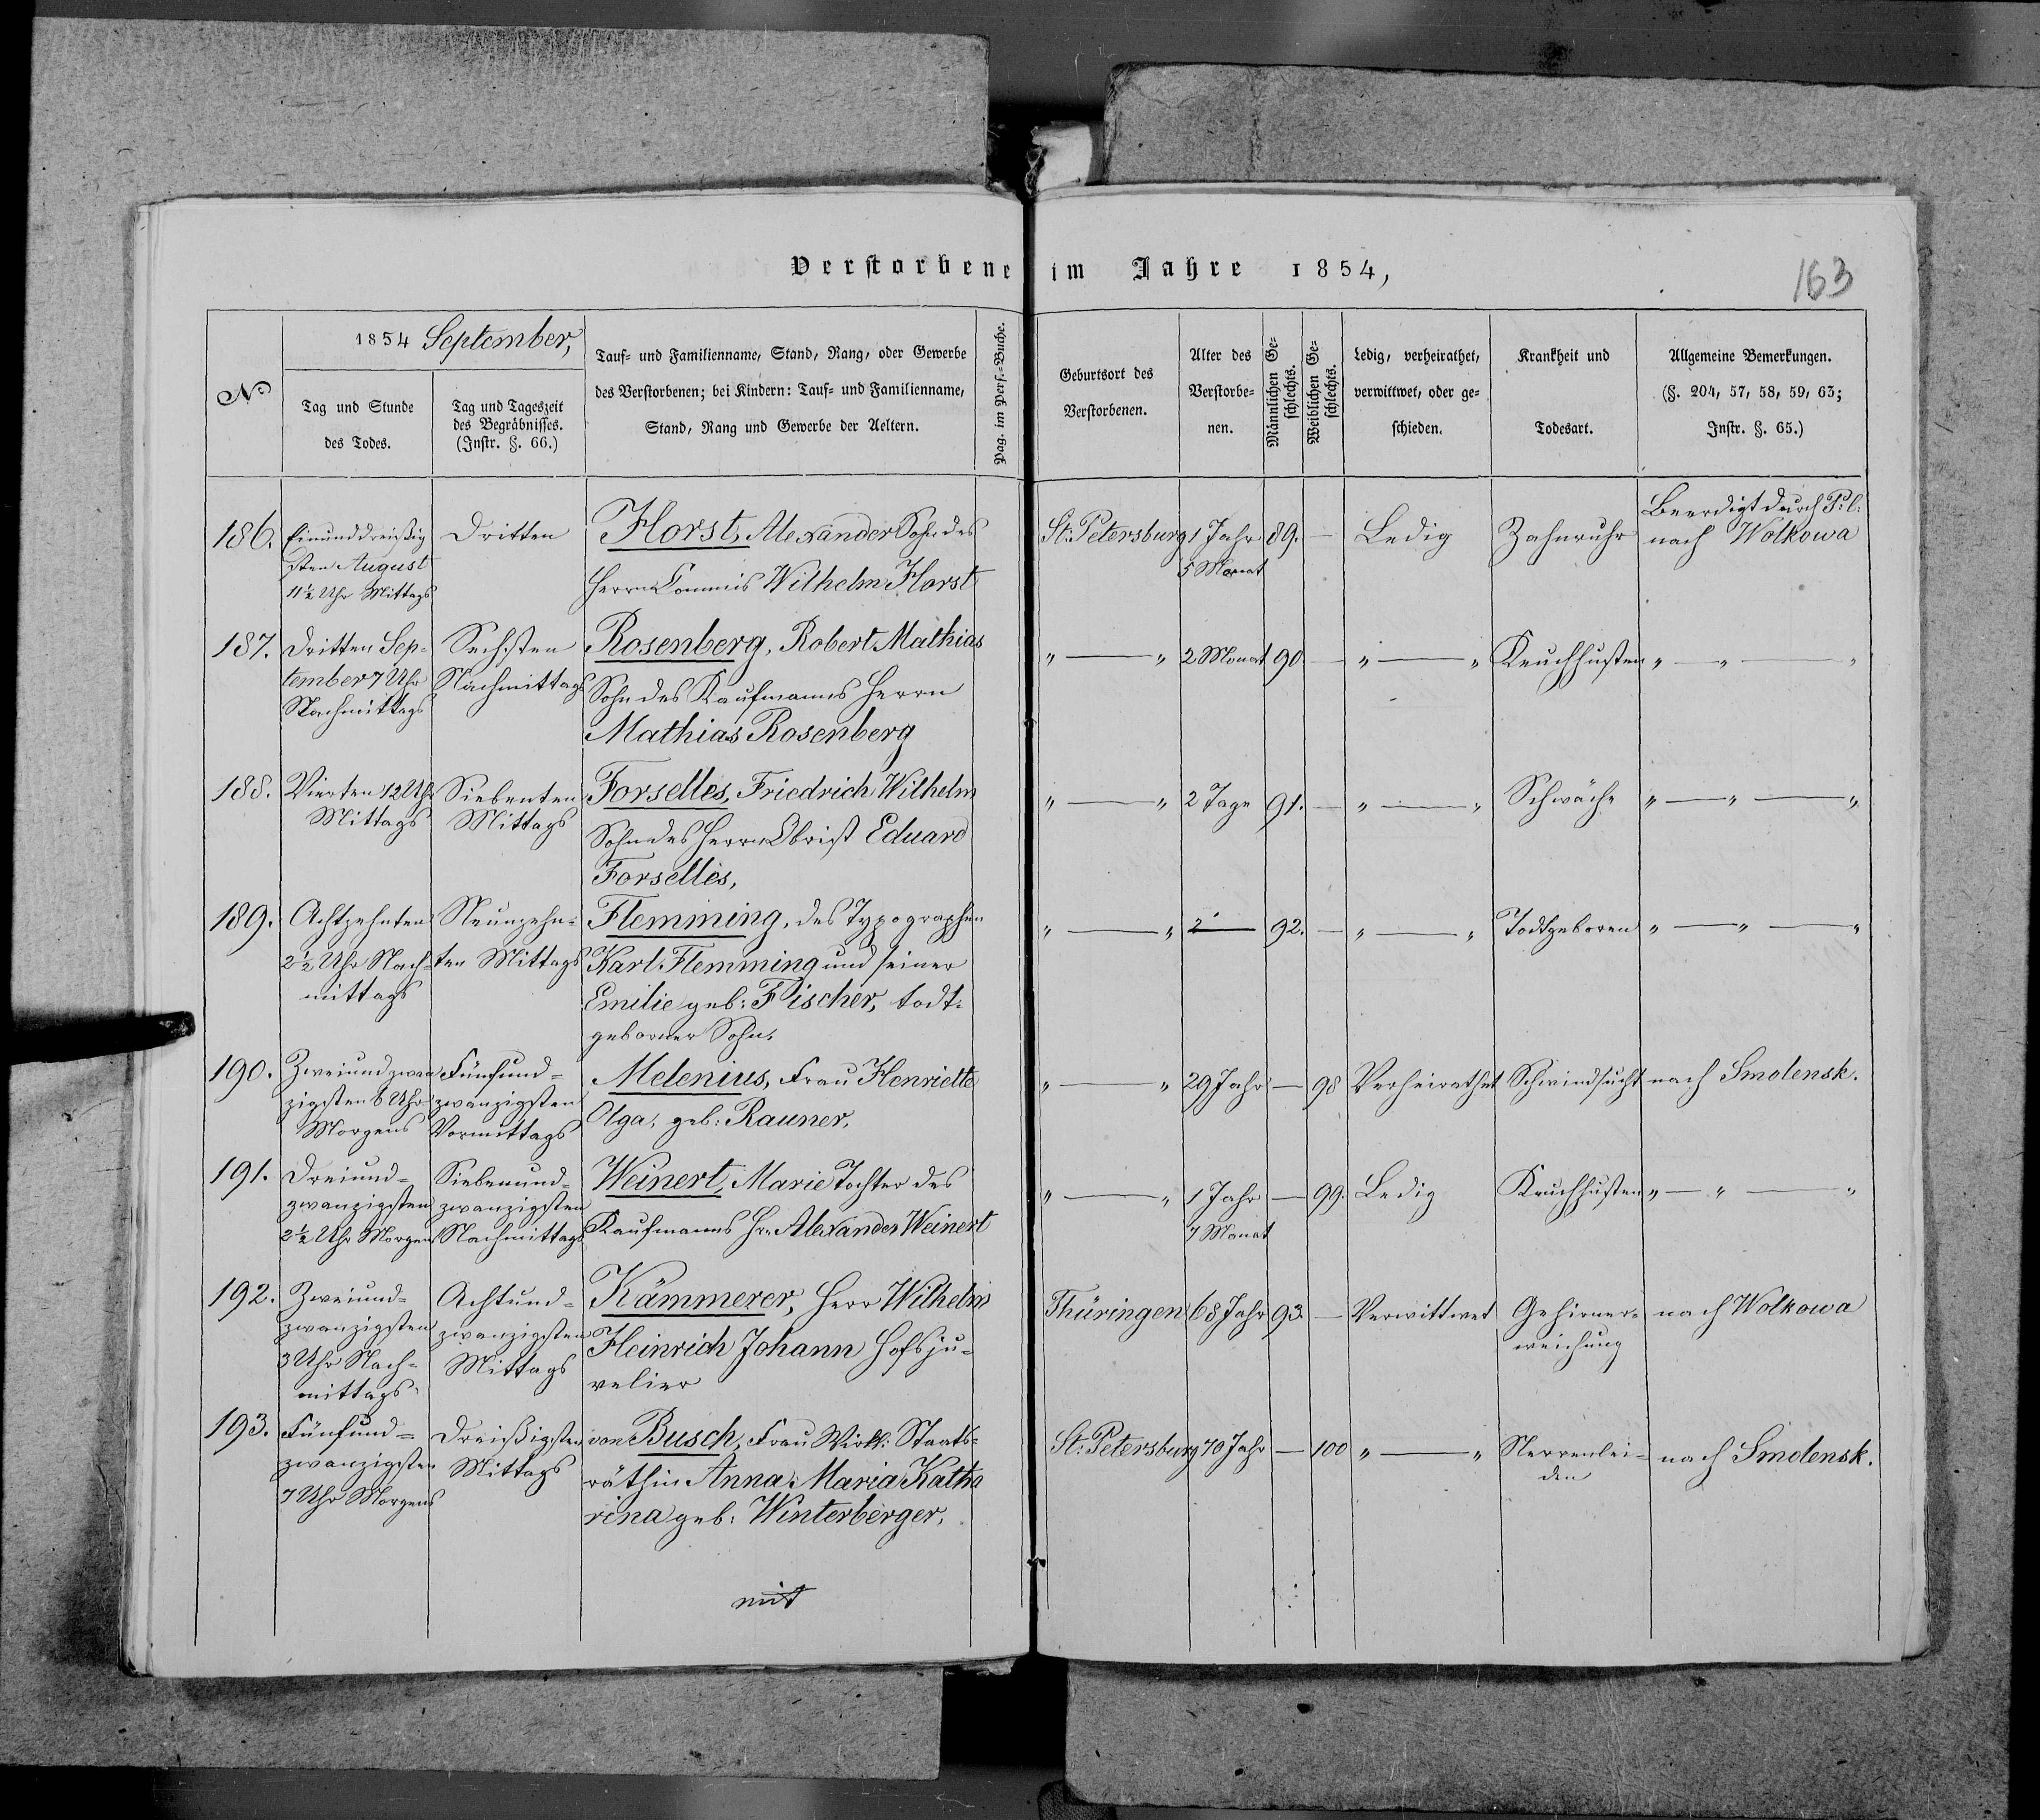 Verstorbene im Jahre 1854,
163
No
1854 September,
Tag und Stunde
des Todes.
Tag und Tageszeit
des Begräbnisses.
(Instr. §. 66.)
Tauf- und Familienname, Stand, Rang, oder Gewerbe
des Verstorbenen; bei Kindern: Tauf- und Familienname,
Stand, Rang und Gewerbe der Aeltern.
Pag. im Pers.-Buche.
Geburtsort des
Verstorbenen.
Alter des
Verstorbe-
nen.
Männlichen Ge-
schlechts.
Weiblichen Ge-
schlechts.
Ledig, verheirathet,
verwittwet, oder ge-
schieden.
Krankheit und
Todesart.
Allgemeine Bemerkungen.
(§. 204, 57, 58, 59, 63;
Instr. §. 65.)
186.
Einunddreißig
sten August
11½ Uhr Mittags
Dritten
Horst, Alexander Sohn des
Herrn Commis Wilhelm Horst
St: Petersburg
1 Jahr
5 Monat
89.
—
Ledig
Zahnruhr
Beerdigt durch P: l:
nach Wolkowa
187.
Dritten Sep-
tember 7 Uhr
Nachmittags
Sechsten
Nachmittags
Rosenberg, Robert Mathias
Sohn des Kaufmanns Herrn
Mathias Rosenberg
„ — „
2 Monat
90.
—
„ — „
Keuchhusten
„ — „ — „
188.
Vierten 12 Uhr
Mittags
Siebenten
Mittags
Forselles, Friedrich Wilhelm
Sohn des Herrn Obrist Eduard
Forselles,
„ — „
2 Tage
91.
—
„ — „
Schwäche
„ — „ — „
189.
Achtzehnten
2½ Uhr Nach-
mittags
Neunzehn-
ten Mittags
Flemming, des Typographen
Karl Flemming und seiner
Emilie geb: Fischer, todt-
geborner Sohn,
„ — „
2
92.
—
„ — „
Todtgeboren
„ — „ — „
190.
Zweiundzwan
zigsten 6 Uhr
Morgens
Fünfund-
zwanzigsten
Vormittags
Melenius, Frau Henriette
Olga, geb: Rauner,
„ — „
29 Jahr
—
98
Verheirathet
Schwindsucht
nach Smolensk.
191.
Dreiund-
zwanzigsten
2½ Uhr Morgens
Siebenund-
zwanzigsten
Nachmittags
Weinert, Marie Tochter des
Kaufmanns Hr. Alexander Weinert
„ — „
1 Jahr
7 Monat
—
99.
Ledig
Keuchhusten
„ — „ — „
192.
Zweiund-
zwanzigsten
3 Uhr Nach-
mittags.
Achtund-
zwanzigsten
Mittags
Kämmerer, Herr Wilhelm
Heinrich Johann Hofsju-
velier
Thüringen
68 Jahr
93.
—
Verwittwet
Gehirner-
weichung
nach Wolkowa
193.
Fünfund-
zwanzigsten
7 Uhr Morgens
Dreißigsten
Mittags
von Busch, Frau Wirkl: Staats-
räthin Anna Maria Katha
rina geb: Winterberger,
St: Petersburg
70 Jahr
—
100
„ — „
Nervenlei-
den
nach Smolensk.
mit